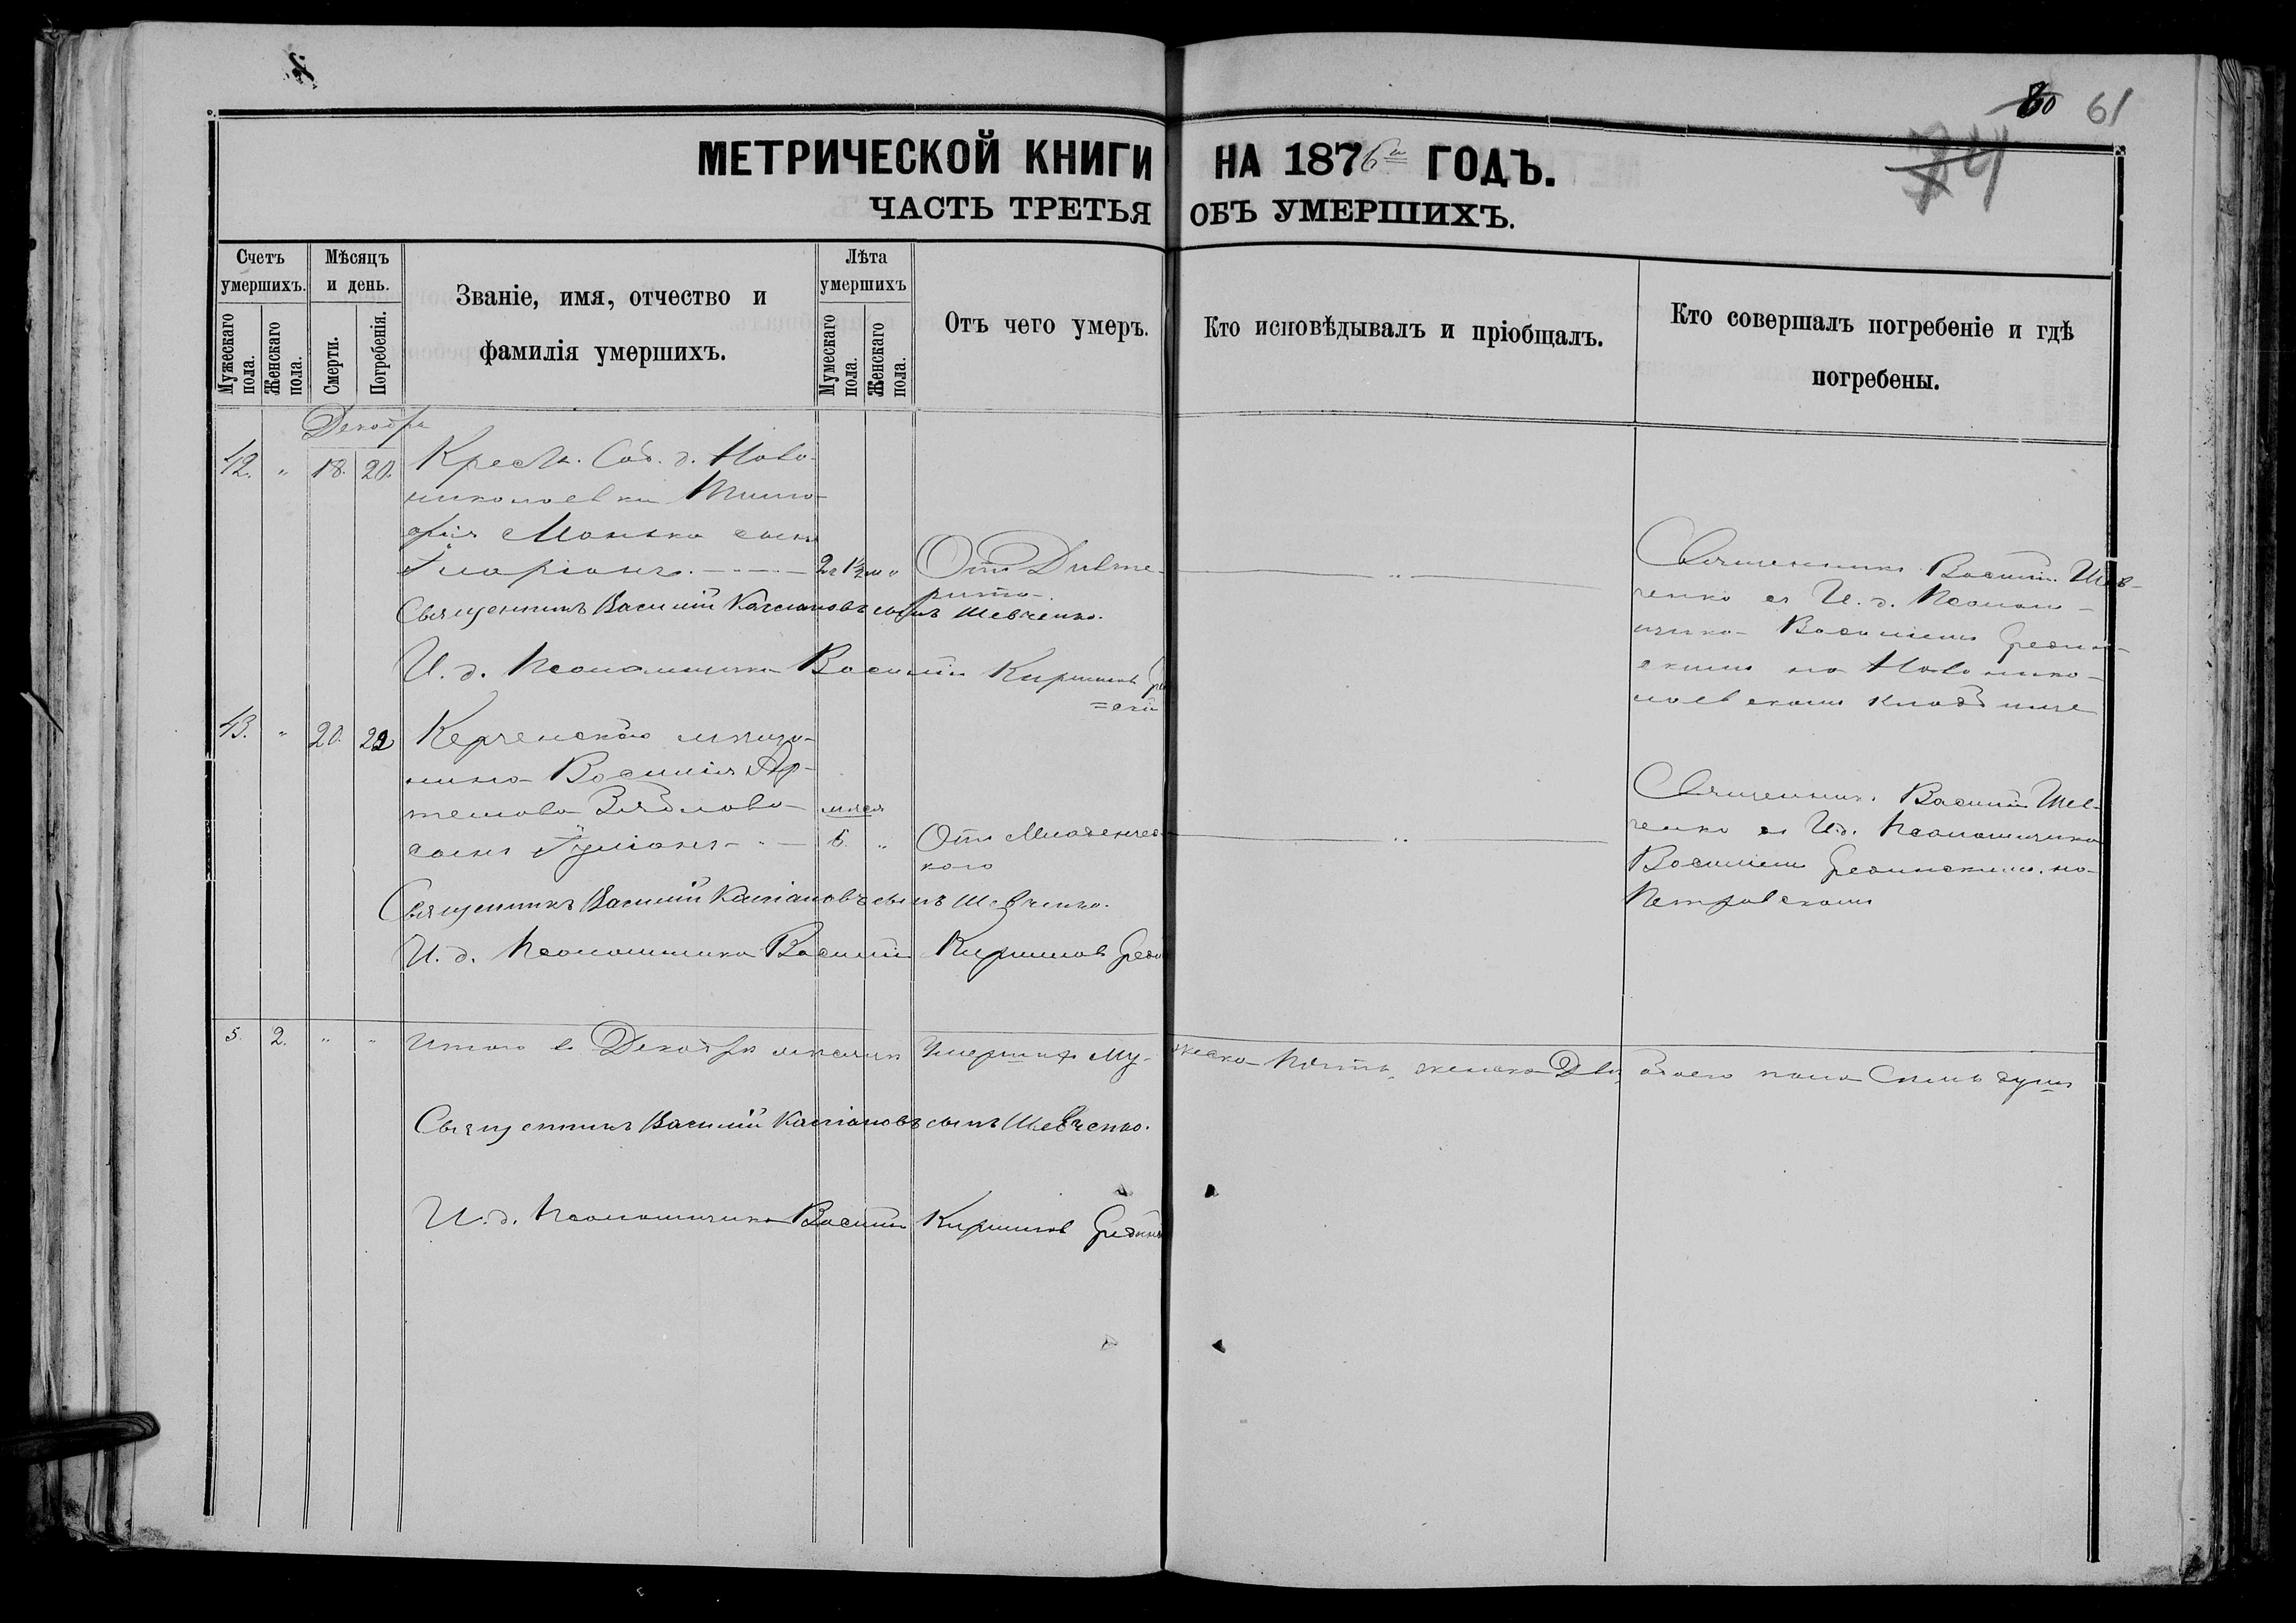 60 61
74
МЕТРИЧЕСКОЙ КНИГИ НА 1876 ГОДЪ.
ЧАСТЬ ТРЕТЬЯ ОБЪ УМЕРШИХЪ.
Счетъ умершихъ.
Мужескаго пола.
Женскаго пола.
Мѣсяцъ и день.
Смерти.
Погребенія.
Званіе, имя, отчество и
фамилія умершихъ.
Лѣта умершихъ
Мужескаго пола.
Женскаго пола.
Отъ чего умеръ.
Кто исповѣдывалъ и пріобщалъ.
Кто совершалъ погребеніе и гдѣ
погребены.
Декабря
42. „ 18. 20. Крест. Соб. д. Ново-
николаевки Тимо-
фея Монька сынъ
Иларіонъ. 2 г 1½ м „ Отъ Дифте-
рита.
Священникъ Василій Шев-
ченко съ И. д. Псалом-
щика Василіемъ
на Новонико-
лаевскомъ кладбище
Священникъ Василій Кассіановъ сынъ Шевченко.
И. д. Псаломщика Василій Кириловъ
=скій
43. „ 20. 22 Керченскаго мѣща-
нина Василія Ар-
темова Зяблова
сынъ Іуліанъ мѣся 6. „ Отъ Младенчес-
каго
Священникъ Василій Шев-
ченко съ И. д. Псаломщика
Василіемъ на
Петровскомъ
Священникъ Василій Кассіановъ сынъ Шевченко.
И. д. Псаломщика Василій Кириловъ
5. 2. „ „ Итого въ Декабрѣ мѣсяцѣ умершихъ му- жеска Пять, женска Двѣ, обоего пола Семь душъ
Священникъ Василій Кассіановъ сынъ Шевченко.
И. д. Псаломщика Василій Кириловъ